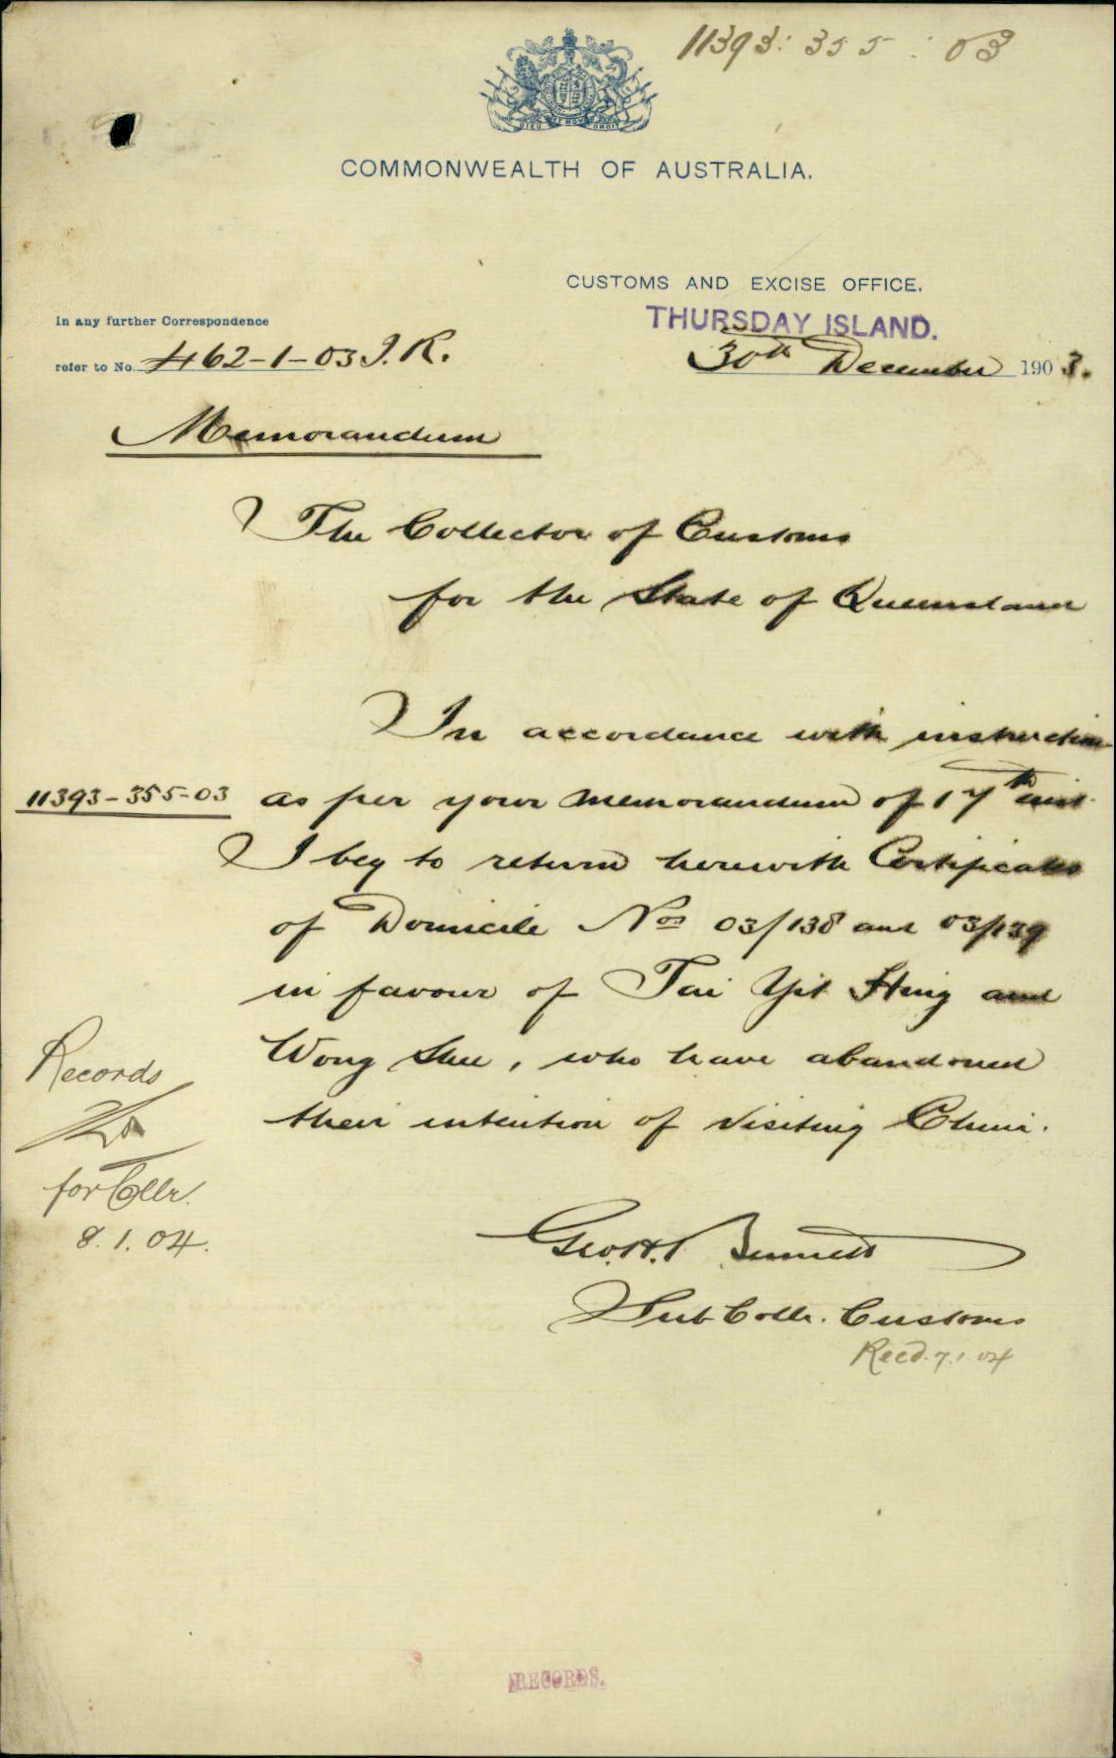 11393: 355 : 03
COMMONWEALTH OF AUSTRALIA.
CUSTOMS AND EXCISE OFFICE.
THURSDAY ISLAND.
In any further Correspondence
refer to No. 462-1-03 I.R.
30th December 1903.
Memorandum
The Collector of Customs
for the State of Queensland
In accordance with instruction
11393-355-03 as per your memorandum of 17th inst.
I beg to return herewith Certificates
of Domicile Nos 03/138 and 03/139
in favour of Tai Yit Hing and
Wong Shee, who have abandoned
their intention of visiting China.
Records
for Collr.
8.1.04.
Geo. H. Bennett
Sub Collr. Customs
Recd. 7.1.04
RECORDS.